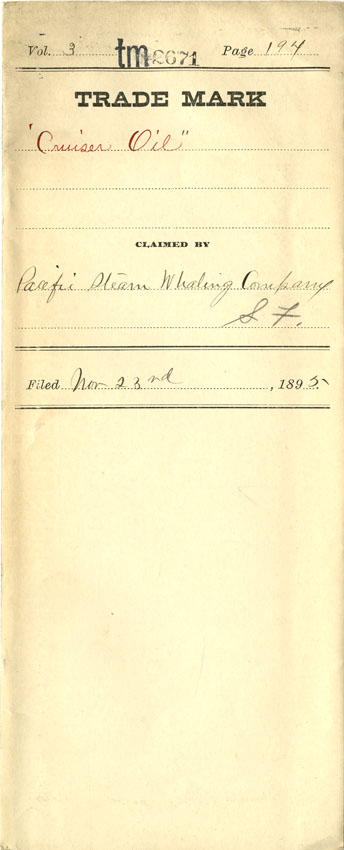 Vol. 3 tm 2671 Page 194
TRADE MARK
"Cruiser Oil"
CLAIMED BY
Pacific Steam Whaling Company
S F.
Filed Nov 23rd, 1895.